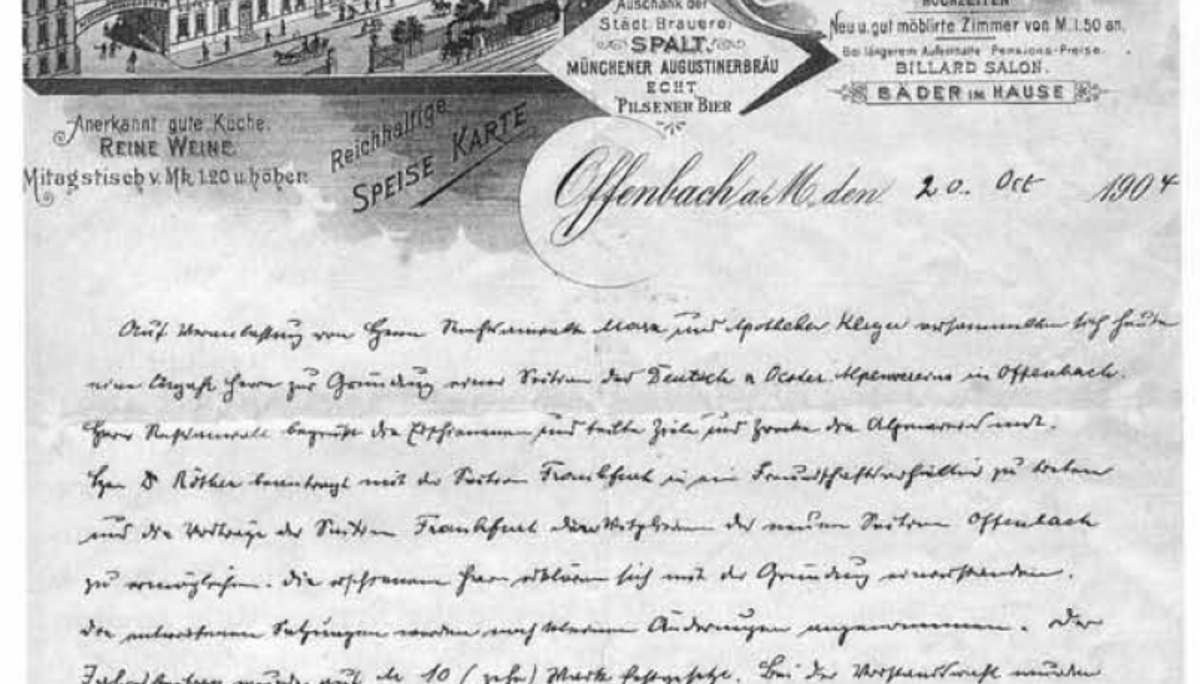 Auschank der
Städt. Brauerei
SPALT.
MÜNCHENER AUGUSTINERBRÄU
ECHT
PILSENER BIER
HOCHZEITEN
Neu u. gut möblirte Zimmer von M. 1.50 an.
Bei längerem Aufenthalte Pensions-Preise.
BILLARD SALON.
BÄDER IM HAUSE
Anerkannt gute Küche.
REINE WEINE.
Mitagstisch v. Mk 1.20 u. höher.
Reichhaltige
SPEISE KARTE
Offenbach a. M. den 20. Oct 1904
Auf Veranlassung von Herrn Rechtsanwalt und Apotheker versammelten sich heute
eine Anzahl Herrn zur Gründung einer Section des Deutsch u Oester. Alpenvereins in Offenbach.
Herr Rechtsanwalt begrüßt die Erschienenen und teilte Ziele und Zwecke des Alpenvereins mit.
Herr Dr Röther beantragt mit der Section Frankfurt in ein Freundschaftsverhältnis zu treten
und die Vorträge der Section Frankfurt den Mitgliedern der neuen Section Offenbach
zu ermöglichen. Die erschienenen Herrn erklären sich mit der Gründung einverstanden.
Die entworfenen Satzungen werden nach kleinen Änderungen angenommen. Der
Jahresbeitrag wurde auf M 10 (zehn) Mark festgesetzt. Bei der Vorstandswahl wurden